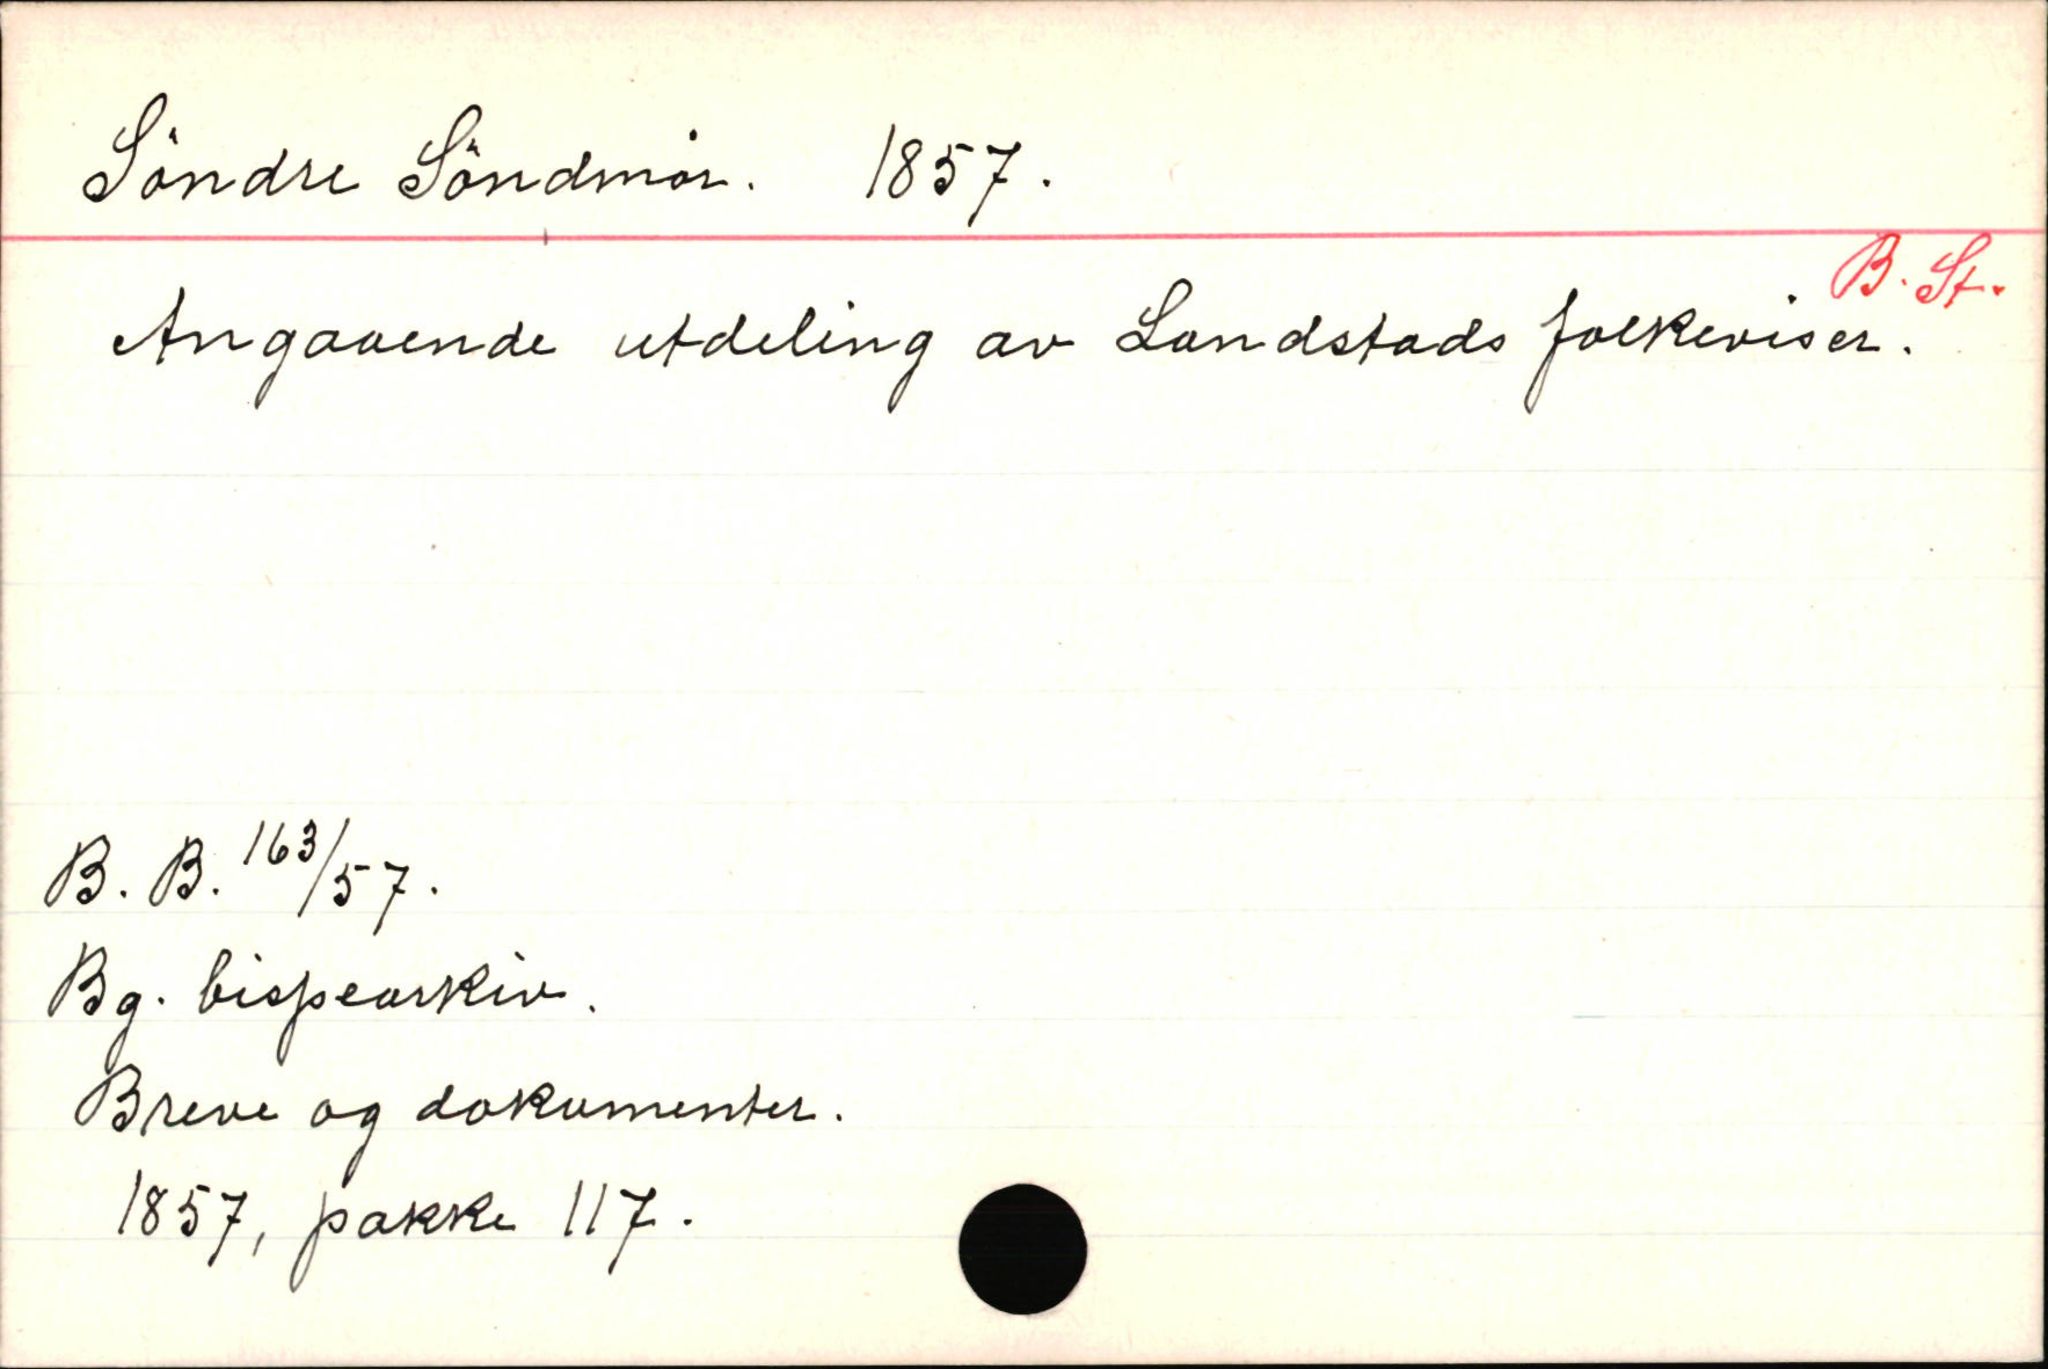 Söndre Söndmör. 1857.
B. St.
Angaaende utdeling av Landstads folkeviser.
B. B. 163/57.
Bg. bispearkiv.
Breve og dokumenter.
1857, pakke 117.